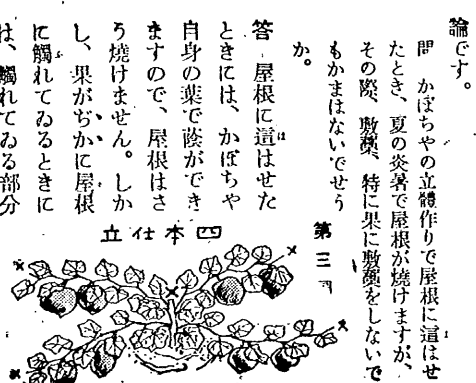 論です。
問　かぼちやの立體作りで屋根に這はせ
たとき、夏の炎暑で屋根が燒けますが、
その際、敷藁、特に果に敷藁をしないで
もかまはないでせう
か。
答　屋根に這はせた
ときには、かぼちや
自身の葉で蔭ができ
ますので、屋根はさ
う燒けません。しか
し、果がぢかに屋根
に觸れてゐるときに
は、觸れてゐる部分
第三
四本仕立